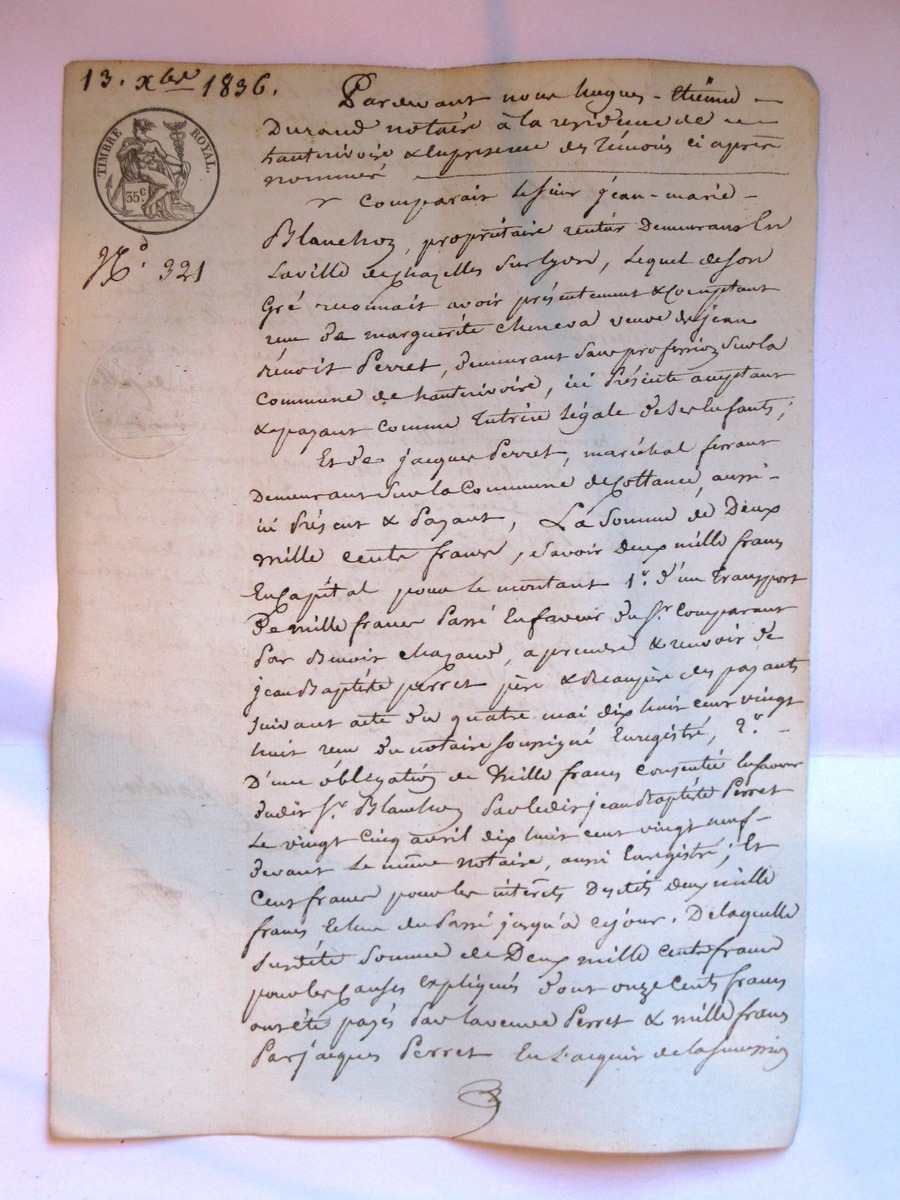 13. Xbre 1836.
TIMBRE ROYAL.
35c
No. 321
Pardevant nous hugues-étiénne
Durand notaire à la residence de
hauterivoire & en presence des témoins ci après
nommés
Comparait le sieur jean-marie
Blanchoz, propriétaire rentier demeurant en
la ville de chazelles sur lyon, lequel de son
Gré reconnait avoir présentement & comptant
reçu de marguerite cheneva veuve de jean
bénoit Perret, demeurant sans profession sur la
commune de hauterivoire, ici Présente acceptant
& payant comme tutrice légale de ses enfants;
Et de jacques Perret, maréchal ferrant
Demeurant sur la commune de cottance, aussi
ici Présent & Payant, La somme de Deux
mille cents francs, savoir deux mille francs
En capital pour le montant 1r. d'un transport
De mille francs Passé En faveur du Sr. comparant
Par Benoit chazaud, a prendre & recevoir de
jean Baptiste perret père & beaupère des payants
suivant acte du quatre mai dix huit cent vingt
huit reçu du notaire soussigné Enregistré, 2r.
D'une obligation de mille francs consentie en faveur
dudit Sr. Blanchoz Par ledit jean Baptiste Perret
Le vingt cinq avril dix huit cent vingt neuf
devant Le même notaire, aussi Enregistré; Et
Cent francs pour les intérêts desdits deux mille
francs Echus du Passé jusqu'à ce jour. De laquelle
susdite somme de Deux mille cents francs
pour les causes expliqués dont onze cents francs
ont été payés Par la veuve Perret & mille francs
Par jacques Perret En L'acquit de la succession